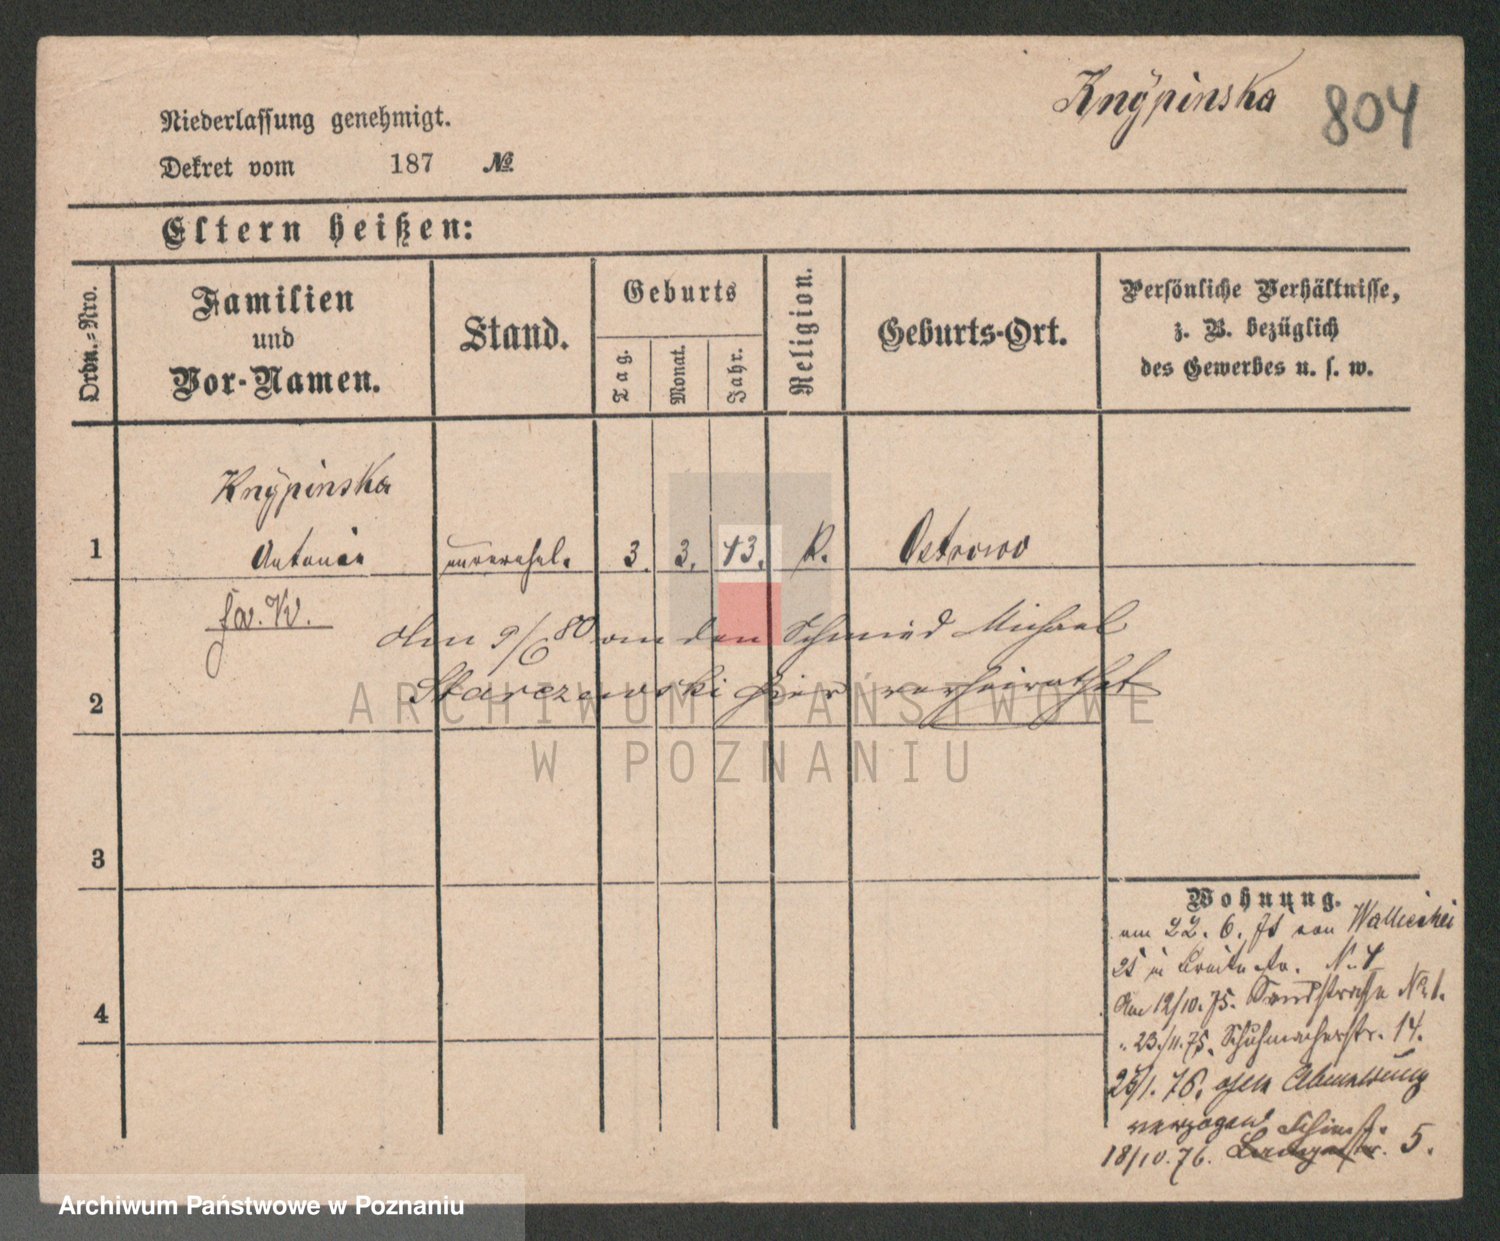 Knÿpinska 804
Niederlassung genehmigt.
Dekret vom 187 №
Eltern heißen:
Ordn.-Nro.
Familien
und
Vor-Namen.
Stand.
Geburts
Tag.
Monat.
Jahr.
Religion.
Geburts-Ort.
Persönliche Verhältnisse,
z. B. bezüglich
des Gewerbes u. s. w.
Knÿpinska
1 Antonie unverehel. 3. 3. 43. K. Ostrowo
den 9/6 80 an den Schmied Michael
2 Starczewski hier verheirathet
3
4
Wohnung.
am 22. 6. von Wallischei
25 in N. 4
Am 12/10. 75. Sandstrasse No 1.
" 23./11. 75. Schuhmacherstr. 14.
25/1. 76. ohne Abmeldung
verzogen
18/10. 76. 5.
ARCHIWUM PAŃSTWOWE
W POZNANIU
Archiwum Państwowe w Poznaniu